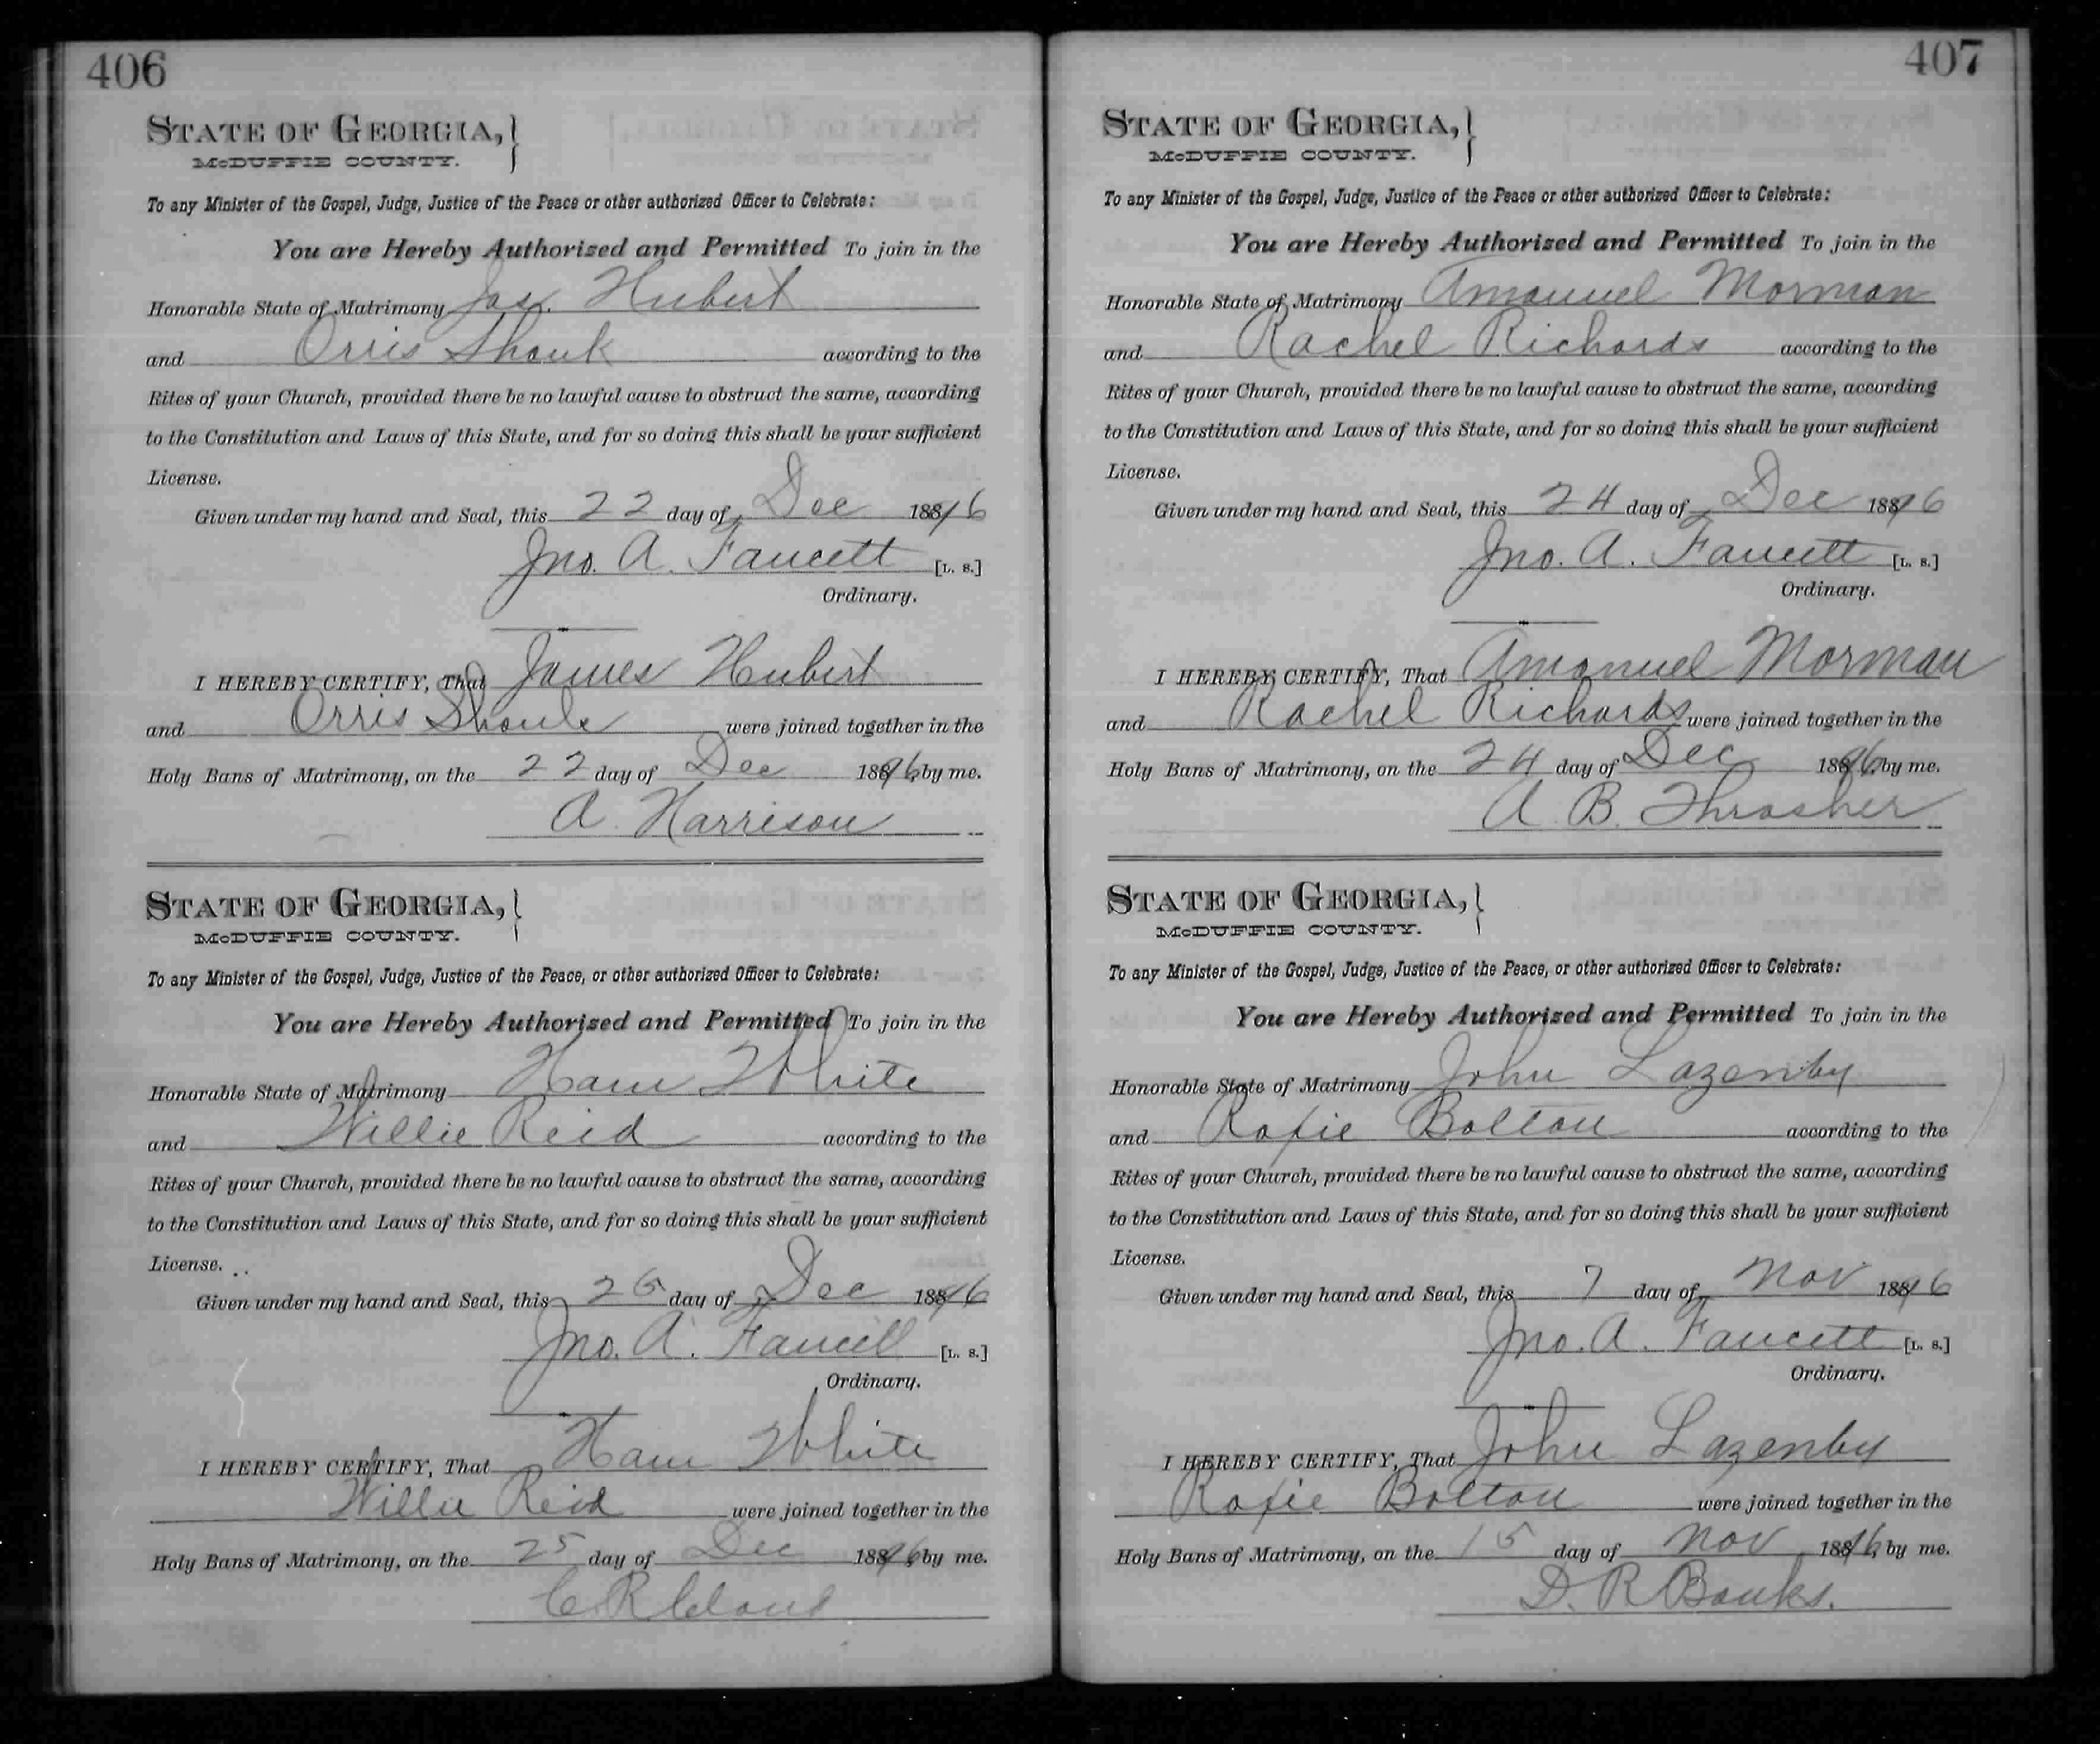 406
STATE OF GEORGIA,
McDUFFIE COUNTY.
To any Minister of the Gospel, Judge, Justice of the Peace or other authorized Officer to Celebrate:
You are Hereby Authorized and Permitted To join in the
Honorable State of Matrimony Jas. Hubert
and Orris Shank according to the
Rites of your Church, provided there be no lawful cause to obstruct the same, according
to the Constitution and Laws of this State, and for so doing this shall be your sufficient
License.
Given under my hand and Seal, this 22 day of Dec 1896
Jno. A. Faucett [L. S.]
Ordinary.
I HEREBY CERTIFY, That James Hubert
and Orris were joined together in the
Holy Bans of Matrimony, on the 22 day of Dec 1896, by me.
A. Harrison
STATE OF GEORGIA,
McDUFFIE COUNTY.
To any Minister of the Gospel, Judge, Justice of the Peace, or other authorized Officer to Celebrate:
You are Hereby Authorized and Permitted To join in the
Honorable State of Matrimony Ham White
and Willie Reid according to the
Rites of your Church, provided there be no lawful cause to obstruct the same, according
to the Constitution and Laws of this State, and for so doing this shall be your sufficient
License.
Given under my hand and Seal, this 25 day of Dec 1896
Jno. A. Faucett [L. S.]
Ordinary.
I HEREBY CERTIFY, That Ham White
Willie Reid were joined together in the
Holy Bans of Matrimony, on the 25 day of Dec 1896, by me.
C. R.
407
STATE OF GEORGIA,
McDUFFIE COUNTY.
To any Minister of the Gospel, Judge, Justice of the Peace or other authorized Officer to Celebrate:
You are Hereby Authorized and Permitted To join in the
Honorable State of Matrimony Amanuel Morman
and Rachel Richards according to the
Rites of your Church, provided there be no lawful cause to obstruct the same, according
to the Constitution and Laws of this State, and for so doing this shall be your sufficient
License.
Given under my hand and Seal, this 24 day of Dec 1896
Jno. A. Faucett [L. S.]
Ordinary.
I HEREBY CERTIFY, That Amanuel Morman
and Rachel Richards were joined together in the
Holy Bans of Matrimony, on the 24 day of Dec 1896, by me.
A B. Thrasher
STATE OF GEORGIA,
McDUFFIE COUNTY.
To any Minister of the Gospel, Judge, Justice of the Peace, or other authorized Officer to Celebrate:
You are Hereby Authorized and Permitted To join in the
Honorable State of Matrimony John Lazenby
and Roxie Bolton according to the
Rites of your Church, provided there be no lawful cause to obstruct the same, according
to the Constitution and Laws of this State, and for so doing this shall be your sufficient
License.
Given under my hand and Seal, this 7 day of Nov 1896
Jno. A. Faucett [L. S.]
Ordinary.
I HEREBY CERTIFY, That John Lazenby
Roxie Bolton were joined together in the
Holy Bans of Matrimony, on the 15 day of Nov 1896, by me.
D. R Banks.